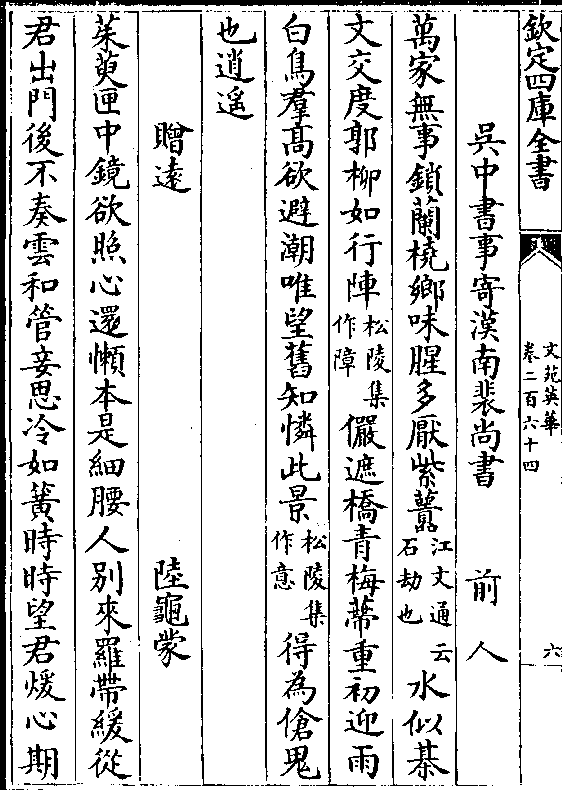 欽定四庫全書
文苑英華
卷二百六十四
六
吳中書事寄漢南裴尚書 前人
萬家無事鎖蘭橈鄉味腥多厭紫虈江文通云石劫也水似棊
文交度郭柳如行陣松陵集作障儼遮橋青梅蔕重初迎雨
白鳥羣髙欲避潮唯望舊知憐此景松陵集作意得為傖鬼
也逍遥
贈逺 陸龜蒙
茱萸匣中鏡欲照心還懶本是細腰人别來羅帶緩從
君出門後不奏雲和管妾思冷如簧時時望君煖心期